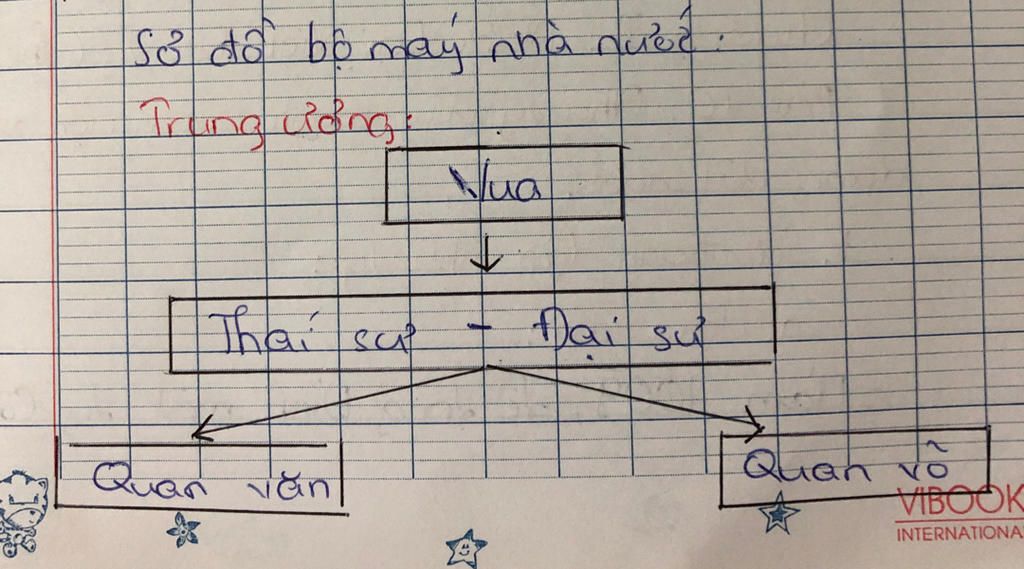 Sơ đồ bộ máy nhà nước:
Trung ương:
Vua
Thái sư - Đại sư
Quan văn
Quan võ
VIBOOK
INTERNATIONA